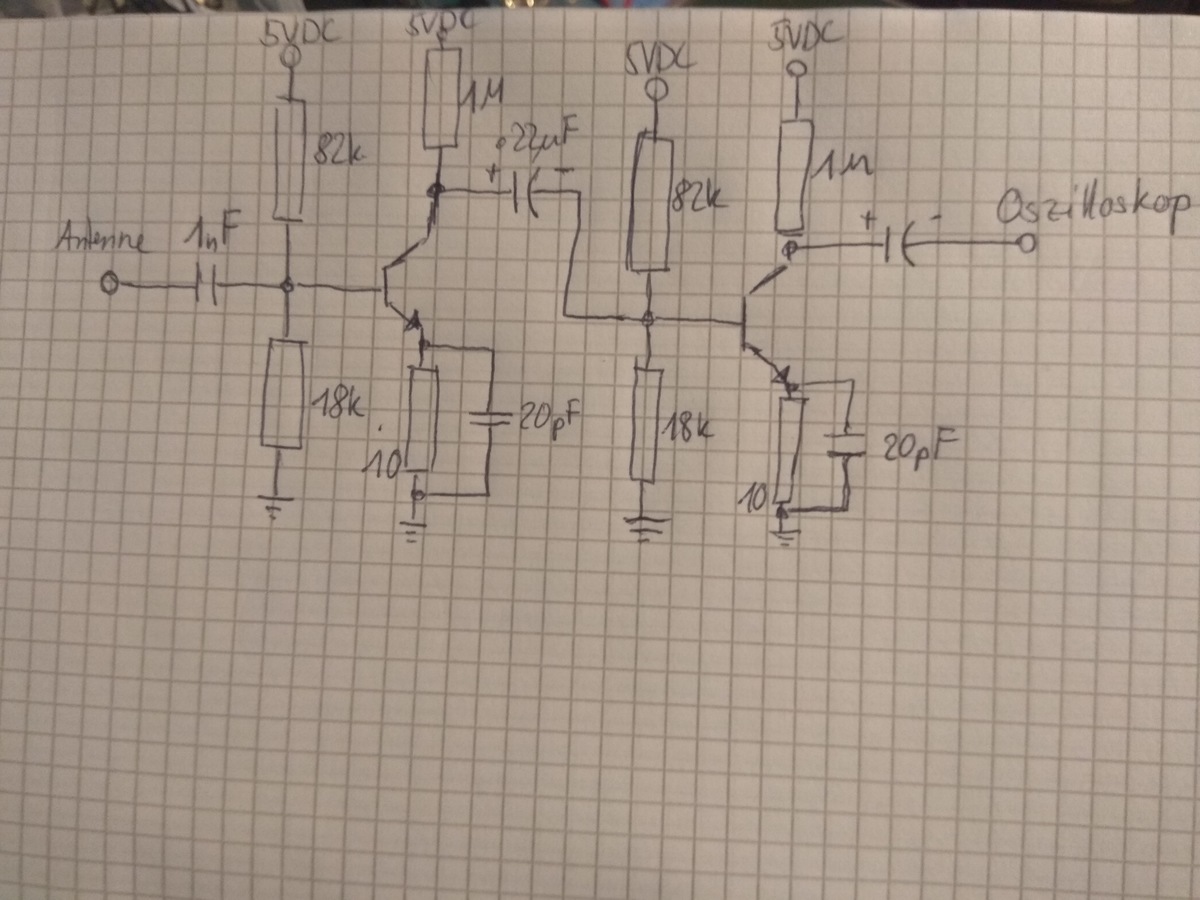 5VDC
5VDC
5VDC
5VDC
1M
22µF
+ -
82k
82k
1M
Antenne
1nF
+ -
Oszilloskop
18k
10
20pF
18k
10
20pF